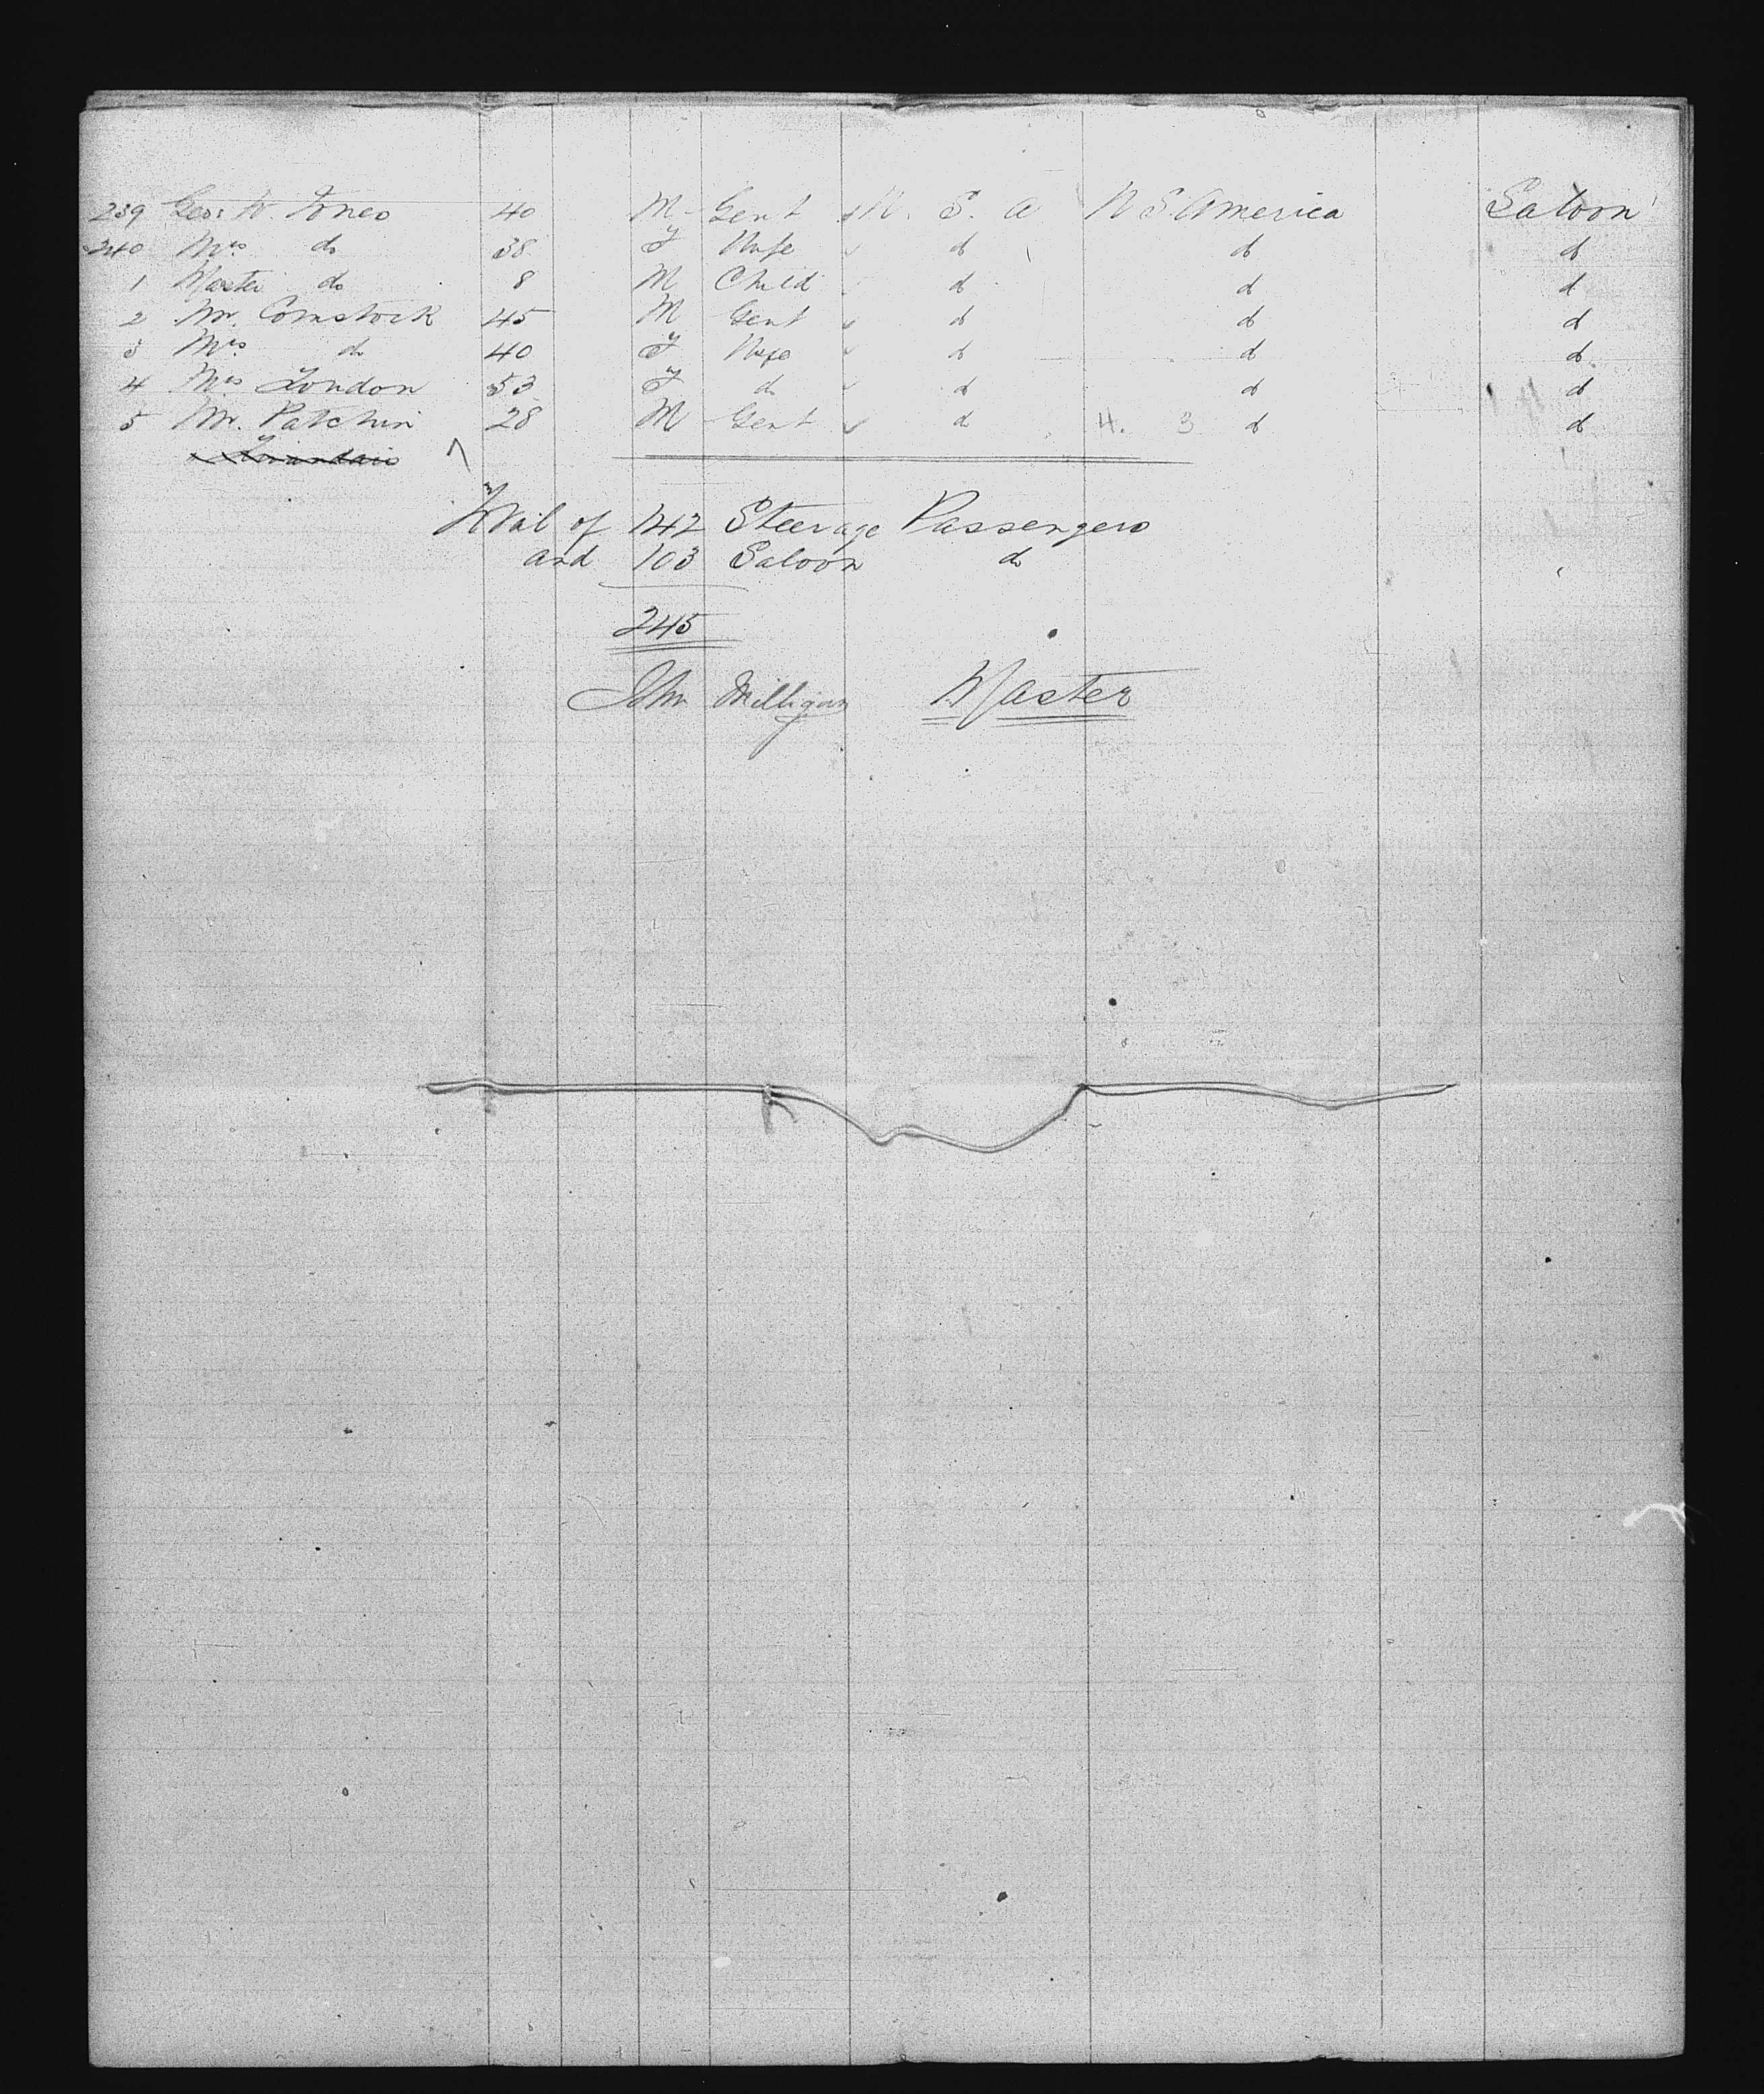 239 Geo: W. Jones 40 M Gent U. S. A U S America Saloon
240 Mrs do 38 F Wife do do do
1 Master do 8 M Child do do do
2 Mr. Comstock 45 M Gent do do do
3 Mrs. do 40 F Wife do do do
4 Mrs London 53 F do do do do
5 Mr. Patchin 28 M Gent do 4. 3 do do
Total of 142 Steerage Passengers
and 103 Saloon do
245
John Milligan Master